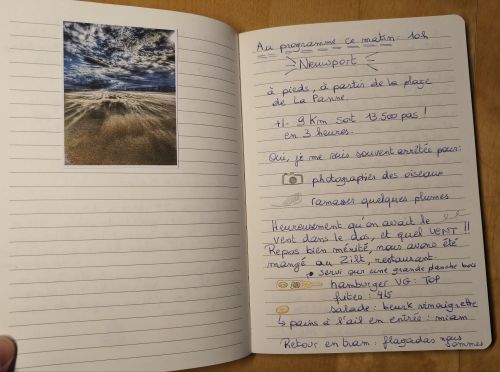 Au programme ce matin : 10h
Nieuwport
à pieds, à partir de la plage
de La Panne.
+/- 9 Km soit 13.500 pas !
en 3 heures.
Oui, je me suis souvent arrêtée pour :
photographier des oiseaux
ramasser quelques plumes
Heureusement qu'on avait le
vent dans le dos, et quel VENT !!
Repos bien mérité, nous avons été
mangé au Zilt, restaurant.
servi sur une grande planche bois
hamburger VG : TOP
frites : 4/5
salade : beurk vinaigrette
↳ pains à l'ail en entrée : miam
Retour en tram : flagadas nous
sommes